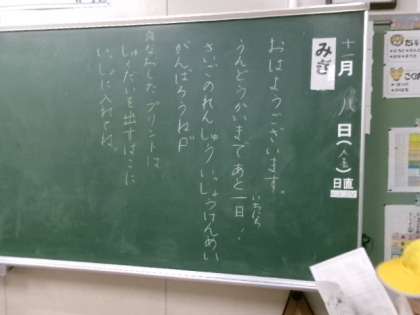 十一月
日(金)
日直
みぎ
おはようございます。
うんどうかいまであと一日!
さいごのれんしゅういっしょうけんめい
がんばろうね
プリントは
しゅくだいを出すはこに
いっしょに入れてね。